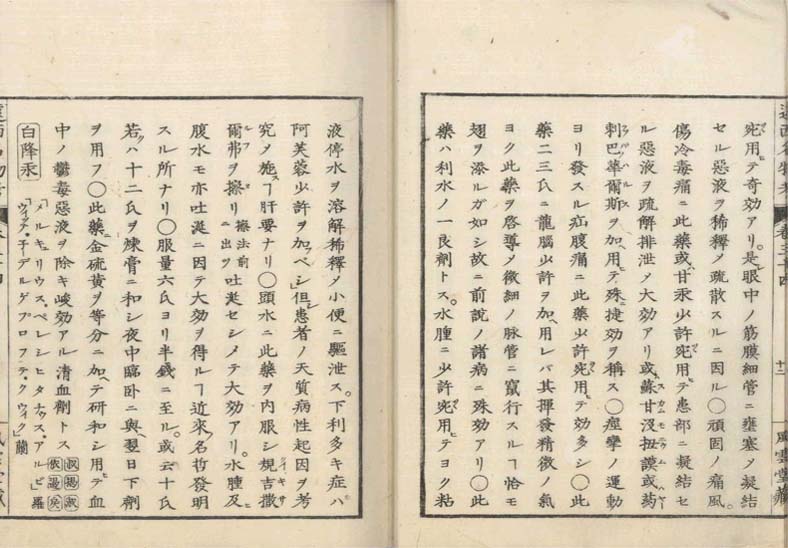 兖用テ奇効アリ。是眼中ノ筋膜細管ニ壅塞メ凝結
セル惡液ヲ稀釋メ疏散スルニ因ル〇頑固ノ痛風
傷冷毒痛ニ此藥或ハ甘汞少許兖用テ患部ニ凝結セ
ル惡液ヲ疏解排泄メ大効アリ或蘇甘没扭謨或葯
刺巴葦爾斯ヲ加用テ殊捷効ヲ稱ス〇痙攣ノ運動
ヨリ發スル疝腹痛ニ此藥少許兖用テ奇効アリ〇此
藥二三氏ニ龍腦少許ヲ加用レバ其揮發精微ノ氣
ヨク此藥ヲ啓導メ微細ノ脉管ニ竄行スルヿ恰モ
翅ヲ添ルガ如シ故ニ前說ノ諸病ニ殊効アリ〇此
藥ハ利水ノ一良劑トス。水腫ニ少許兖用テヨク粘
十三
風雲堂藏
液停水ヲ溶解稀釋メ小便ニ驅泄ス。下利多キ症ハ
阿芙蓉少許ヲ加ベシ但患者ノ天質病性起因ヲ考
究メ施ヿ肝要ナリ〇頭水ニ此藥ヲ内服シ規吉撒
爾弗ヲ擦リ擦法前ニ出ヅ吐涎セシメテ大効アリ。水腫及
腹水モ亦吐涎ニ因テ大効ヲ得ルヿ近來名哲發明
スル所ナリ〇服量六氏ヨリ半錢ニ至ル。或云十氏
若ハ十二氏ヲ煉膏ニ和シ夜中臨卧ニ與翌日下劑
ヲ用フ〇此藥金硫黄ヲ等分ニ加テ研和シ用テ血
中ノ鬱毒惡液ヲ除キ峻効アル清血劑トス
白降汞
「メルキュリウス・ペレシピタナウス・アルビ」羅
「ウィッテ・ヂーデルゲプロフテ・クウィク」蘭